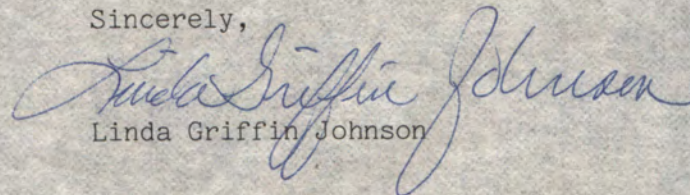 Sincerely,
Linda Griffin Johnson
Linda Griffin Johnson